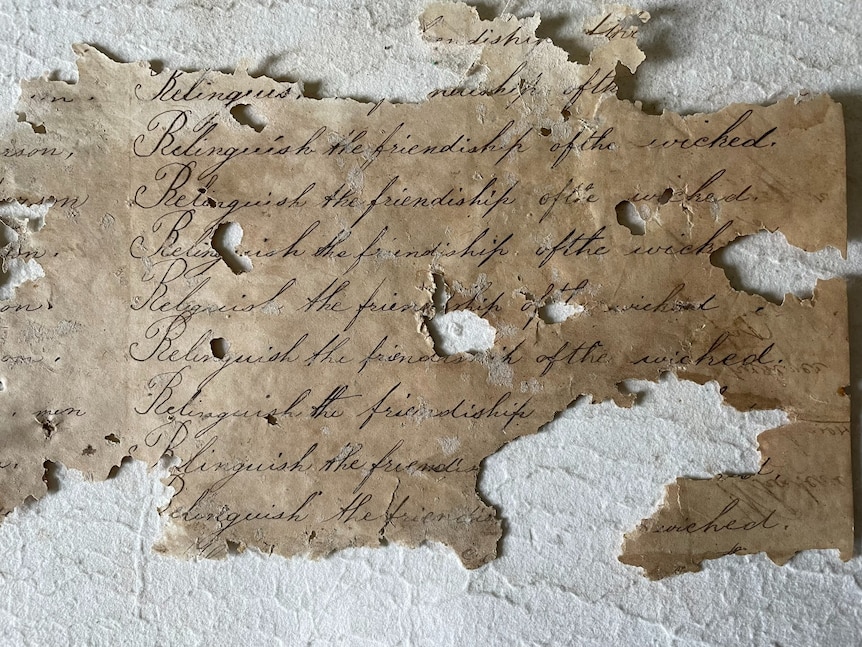 endiship
Relinguis nership of th
Relinguish the friendiship of the wicked.
erson,
Relinguish the friendiship of the wicked.
Relinguish the friendiship of the wick
Religuish the frien ship of the wicked
Relinguish the friendiship of the wicked.
Relinguish the friendiship
men
Relinguish the friendi
Relinguish the friendi wicked.